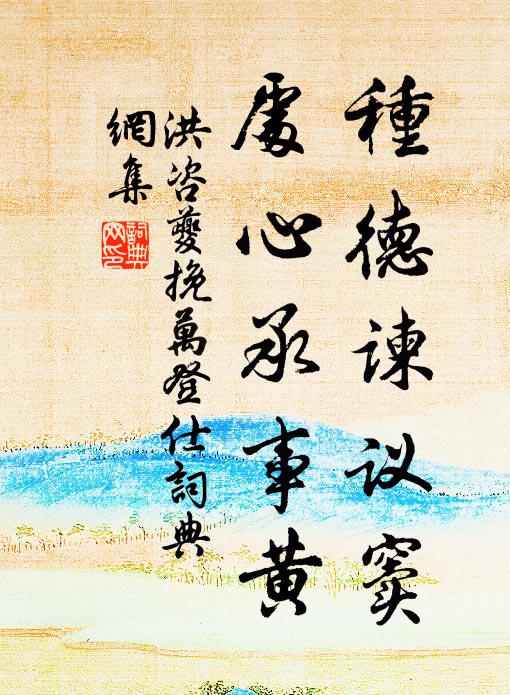 種德諫议窦
處心承事黄
洪咨夔挽萬登仕詞典
網集
詞典
网印